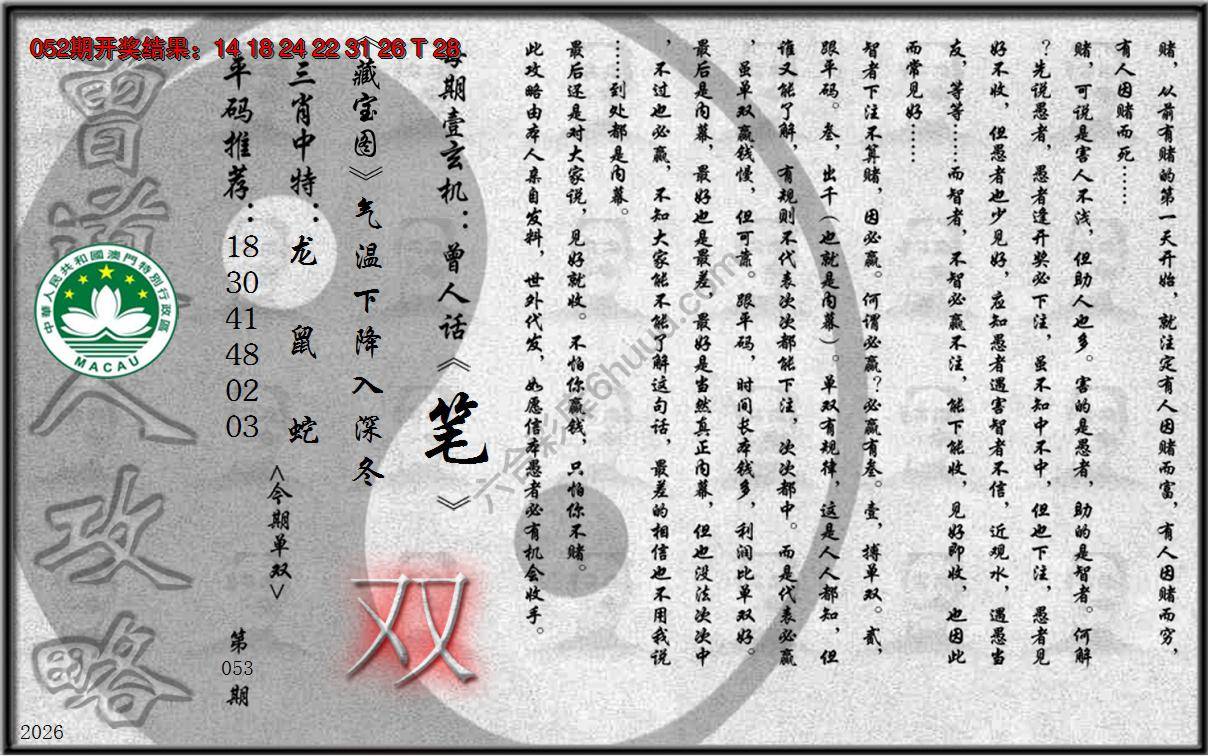 052期开奖结果：14 18 24 22 31 26 T 28
赌，从前有赌的第一天开始，就注定有人因赌而富，有人因赌而穷，
有人因赌而死……
赌，可说是害人不浅，但助人也多。害的是愚者，助的是智者。何解
？先说愚者，愚者逢开奖必下注，虽不知中不中，但也下注，愚者见
好不收，但愚者也少见好，应知愚者遇害智者不信，近观水，遇愚当
友，等等……而智者，不智必赢不注，能下能收，见好即收，也因此
而常见好……
智者下注不算赌，因必赢。何谓必赢？必赢有叁。壹，搏单双。贰，
跟平码。叁，出千（也就是内幕）。单双有规律，这是人人都知，但
谁又能了解，有规则不代表次次都能下注，次次都中。而是代表必赢
，虽单双赢钱慢，但可靠。跟平码，时间长本钱多，利润比单双好。
最后是内幕，最好也是最差，最好是当然真正内幕，但也没法次次中
，不过也必赢，不知大家能不能了解这句话，最差的相信也不用我说
……到处都是内幕。
最后还是对大家说，见好就收。不怕你赢钱，只怕你不赌。
此攻略由本人亲自发料，世外代发，如愿信本愚者必有机会收手。
每期壹玄机：曾人话《笔》
《藏宝图》气温下降入深冬
双
三肖中特：龙 鼠 蛇
<今期单双>
平码推荐：
18
30
41
48
02
03
第
053
期
曾道人攻略
中華人民共和國澳門特別行政區
MACAU
2026
六合彩库6huuu.com